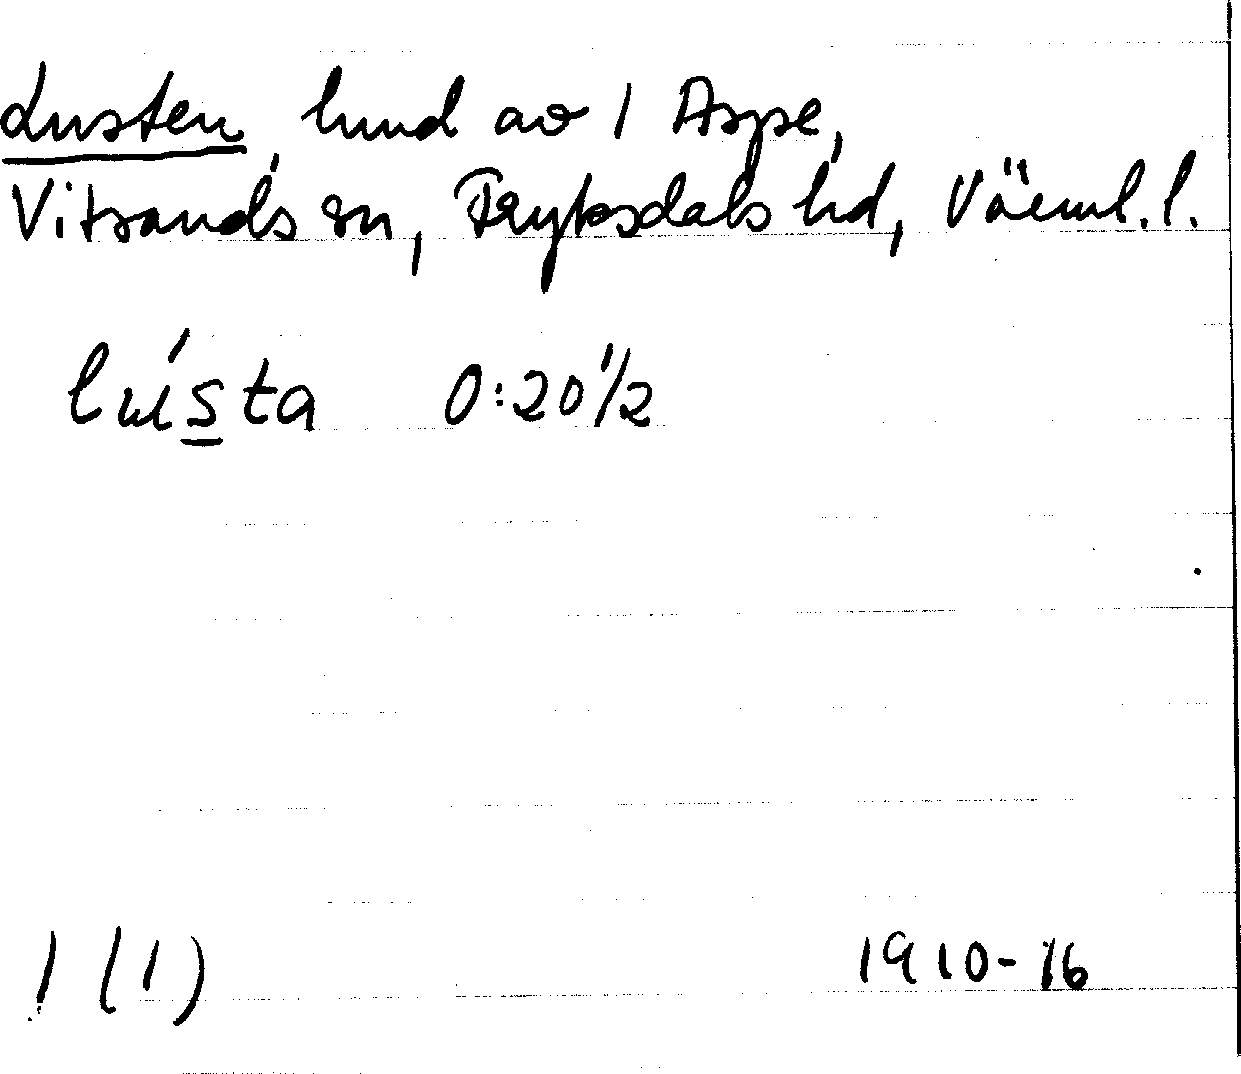 Lusten, hmd av 1 Aspe,
Vitsands sn, Fryksdals hd, Värml. l.
lústa 0:20 1/2
1 (1) 1910-16